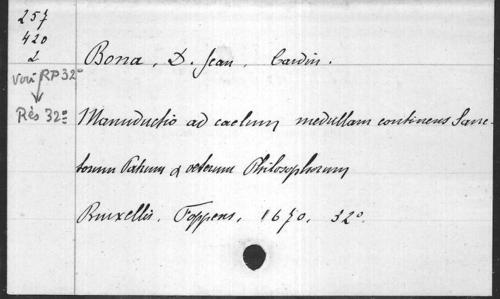 257
420
2
Bona, D. Jean, Cardin.
voir RP 32º
Rés 32º
Manuductio ad caelum medullam continens Sanc-
torum Patrum & veterum Philosophorum
Bruxellis, Foppens, 1670, 32º.